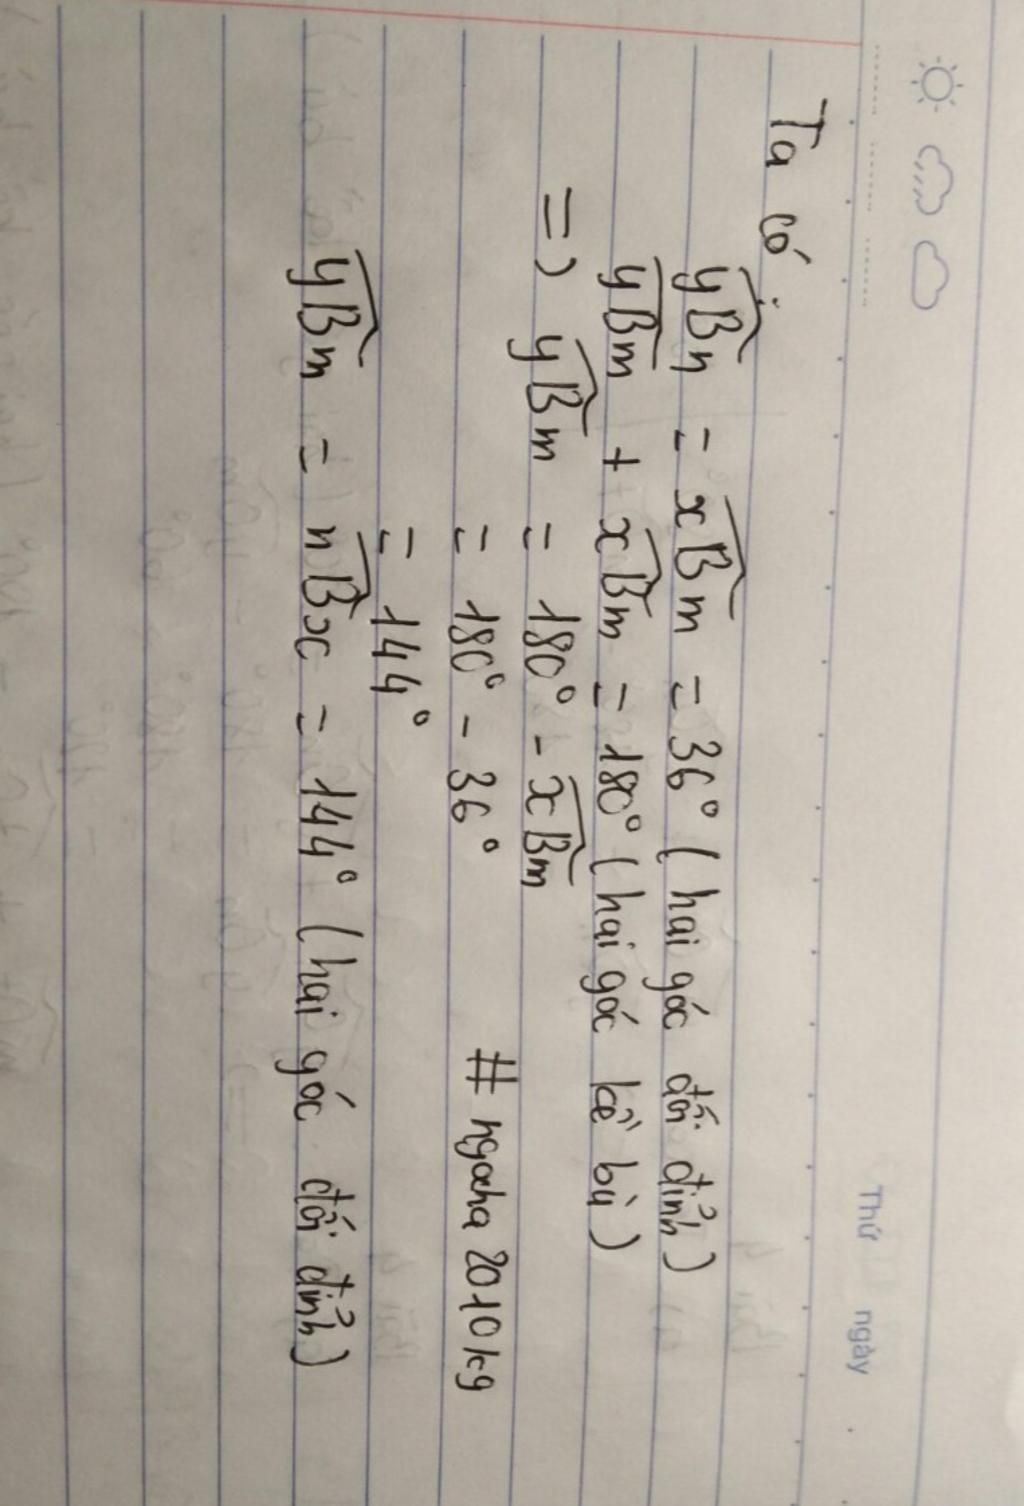 Thứ ngày
Ta có:
yBn = xBm = 36° (hai góc đối đỉnh)
yBm + xBm = 180° (hai góc kề bù)
=) yBm = 180° - xBm
= 180° - 36°
= 144°
# ngocha2010kg
yBm = nBx = 144° (hai góc đối đỉnh)